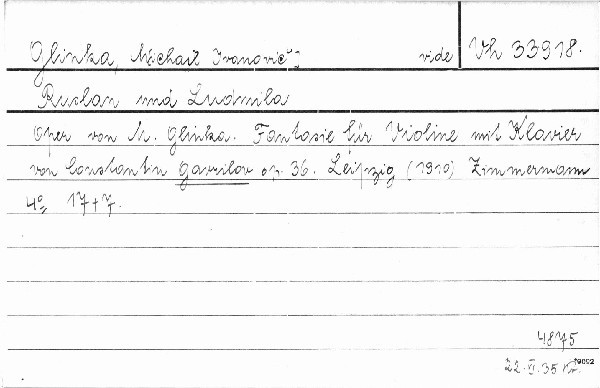 Glinka, Michail Ivanovič vide Vh 33918.
Ruslan und Ludmila
Oper von M. Glinka. Fantasie für Violine mit Klavier
von Constantin Gavrilov op. 36. Leipzig (1910) Zimmermann
4° 17+7.
4875
22. VI. 35 Kr. 19002